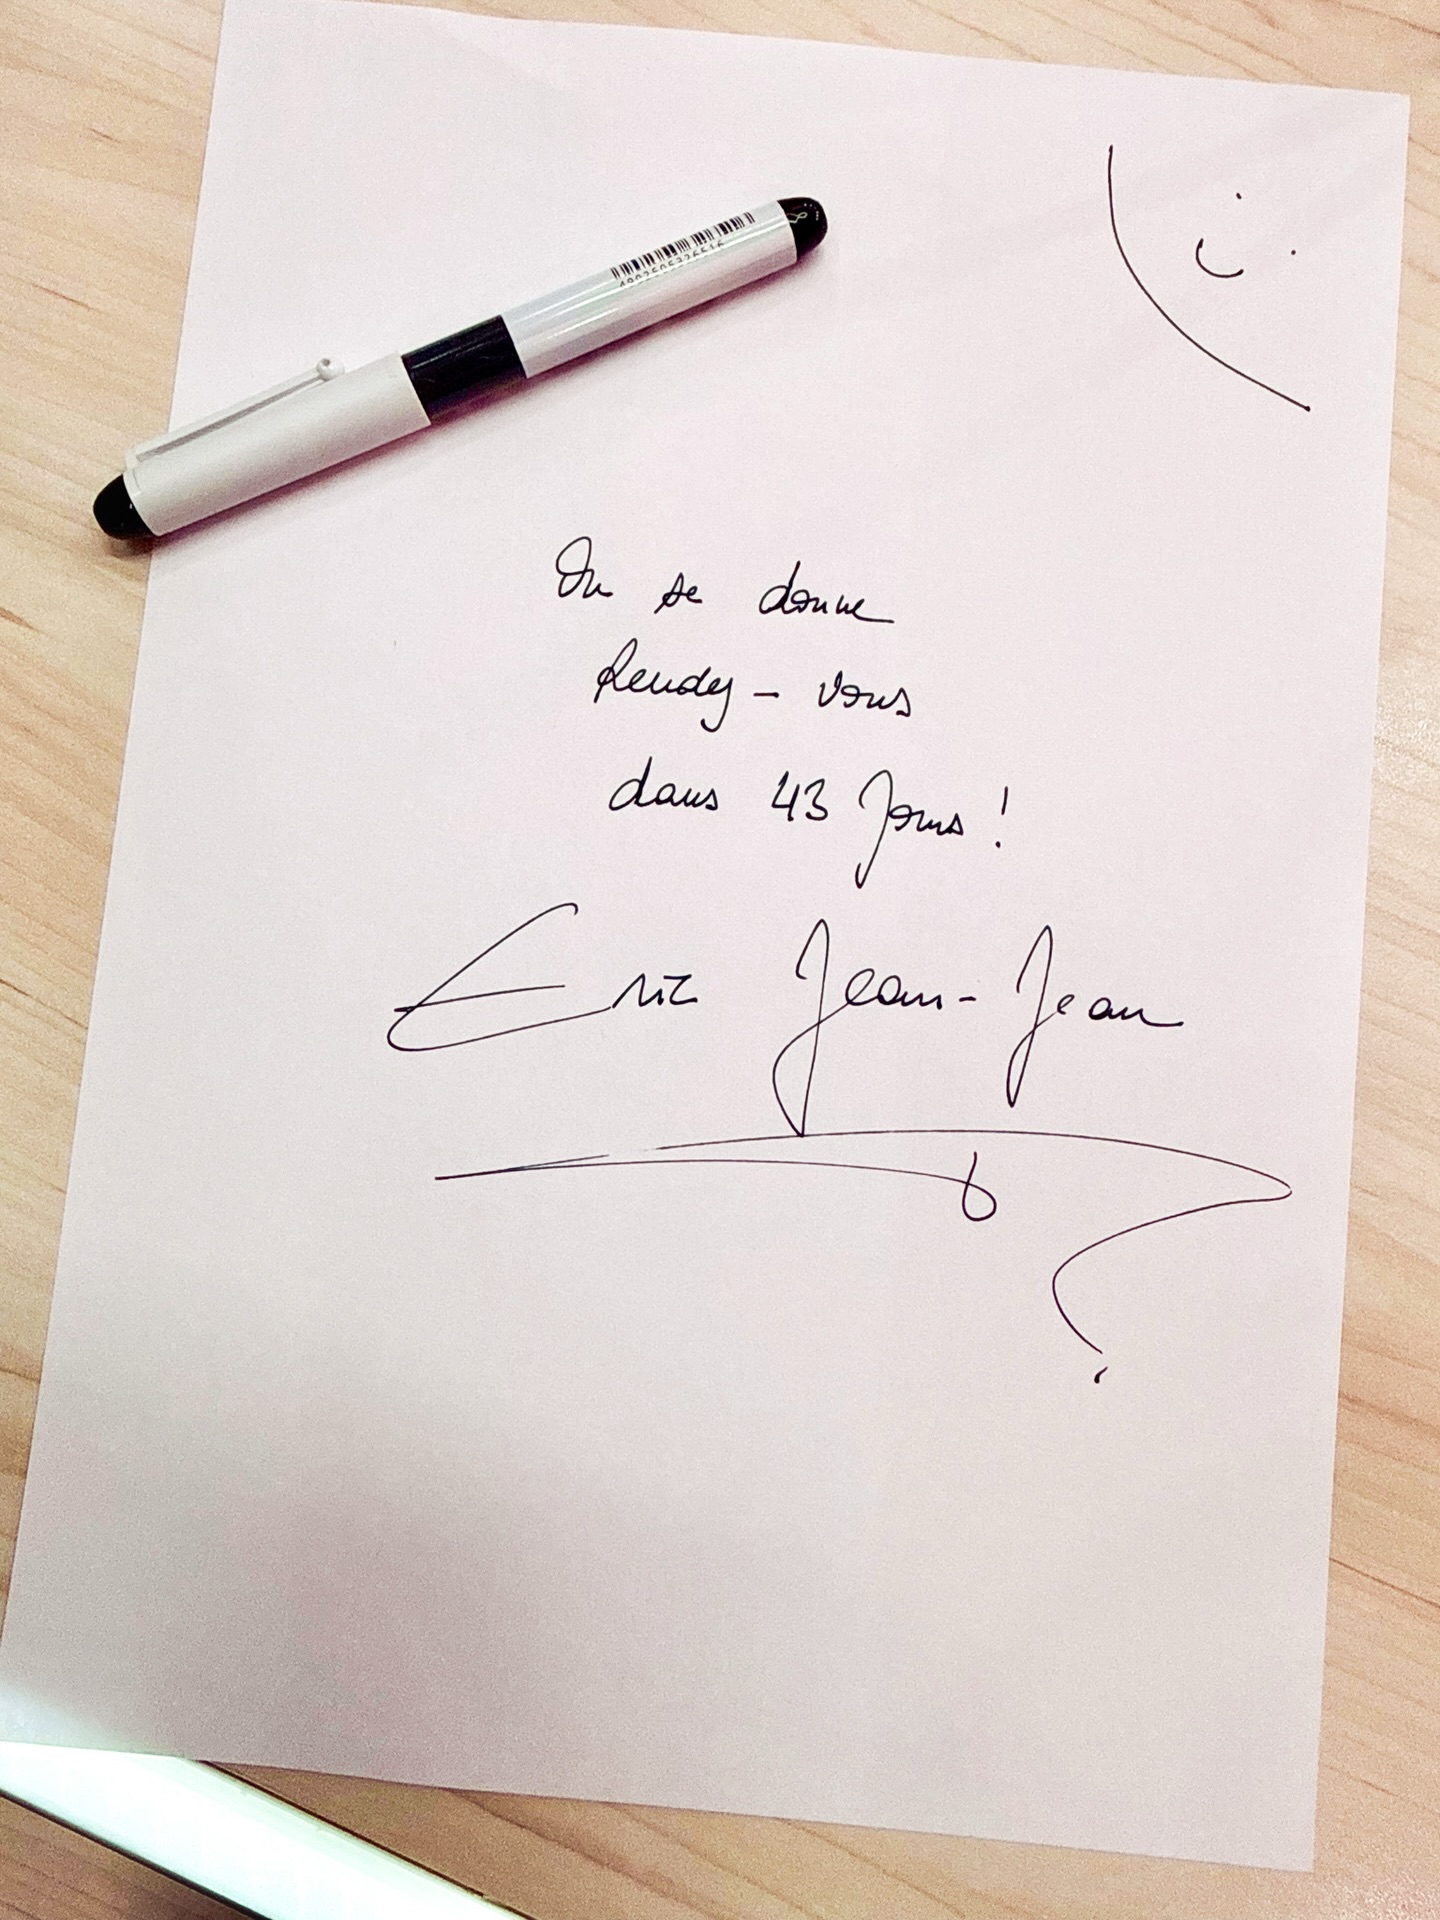 4902505326516
On se donne
Rendez-vous
dans 43 Jours !
Eric Jean-Jean